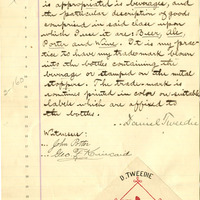 is appropriated is beverages, and
the particular description of goods
comprised in said class upon
which I use it are Beer, Ale,
Porter and Wine. It is my prac-
tice to have my trademark blown
into the bottles containing the
beverage or stamped on the metal
stoppers. The trademark is
sometimes printed in color on suitable
labels which are affixed to
the bottles.
Daniel Tweedie
Witnesses:
John
Geo. F. Kincaid
D. TWEEDIE